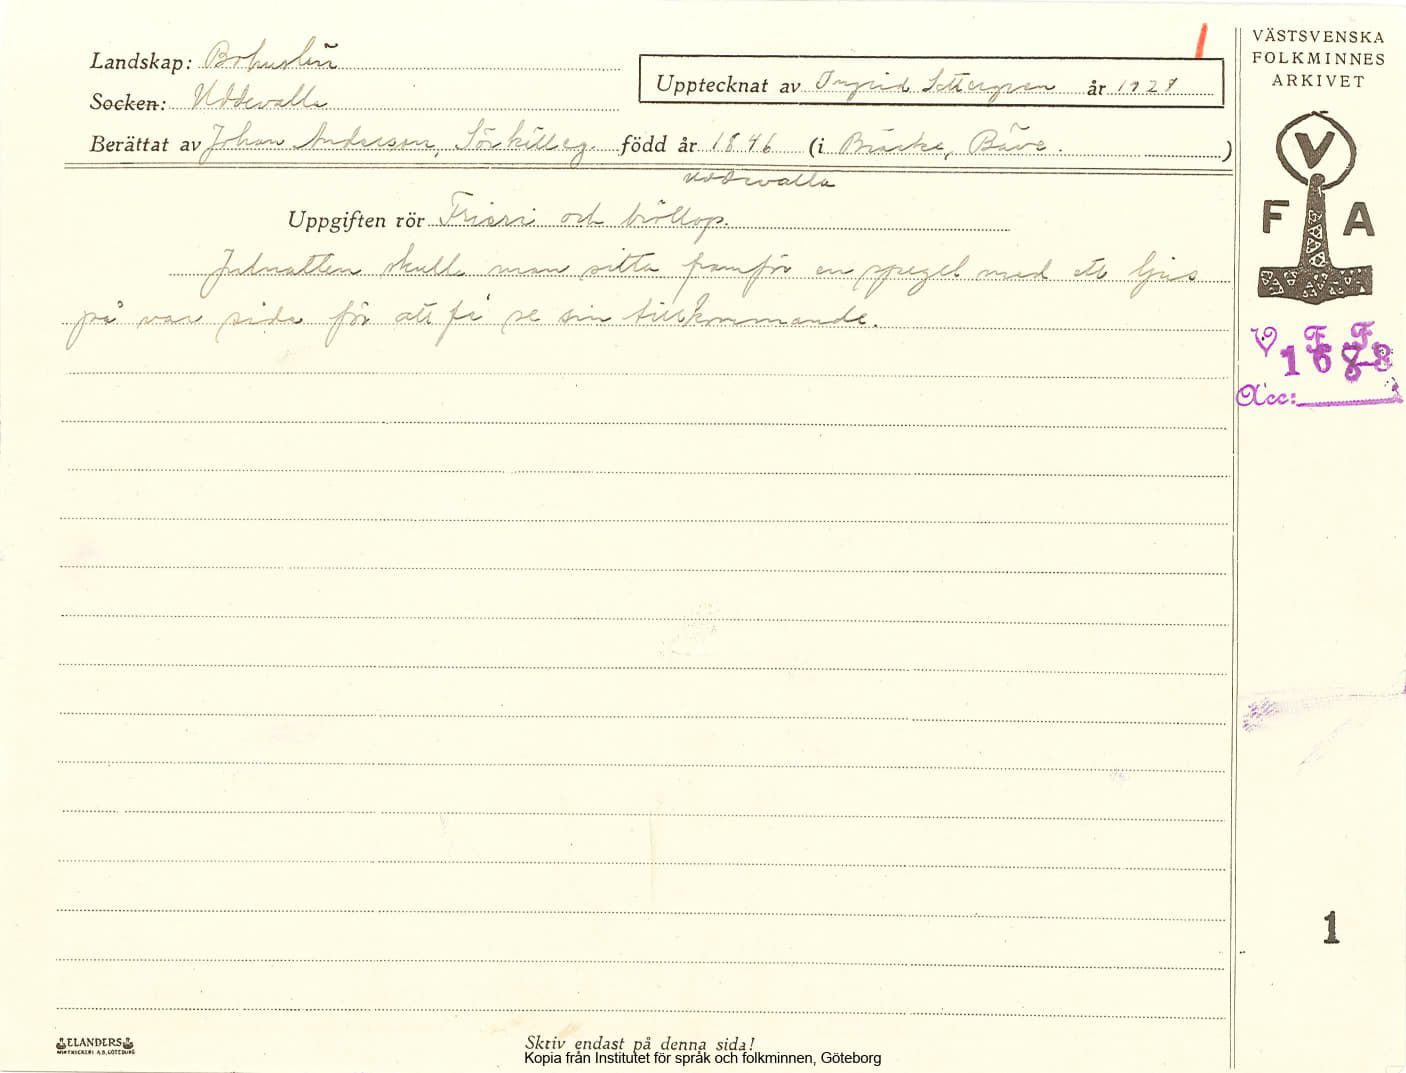 1
VÄSTSVENSKA
FOLKMINNES
ARKIVET
Landskap: Bohuslän
Upptecknat av Ingrid Settergren år 1927
Socken: Uddevalla
Berättat av Johan Andersson, född år 1846 (i Bräcke, Bäve.)
Uddevalla
V
F A
Uppgiften rör Frieri och bröllop.
Julnatten skulle man sitta framför en spegel med ett ljus
på var sida för att få se sin tillkommande.
V F F
1688
Acc:
1
ELANDERS
GÖTEBORG
Skriv endast på denna sida!
Kopia från Institutet för språk och folkminnen, Göteborg